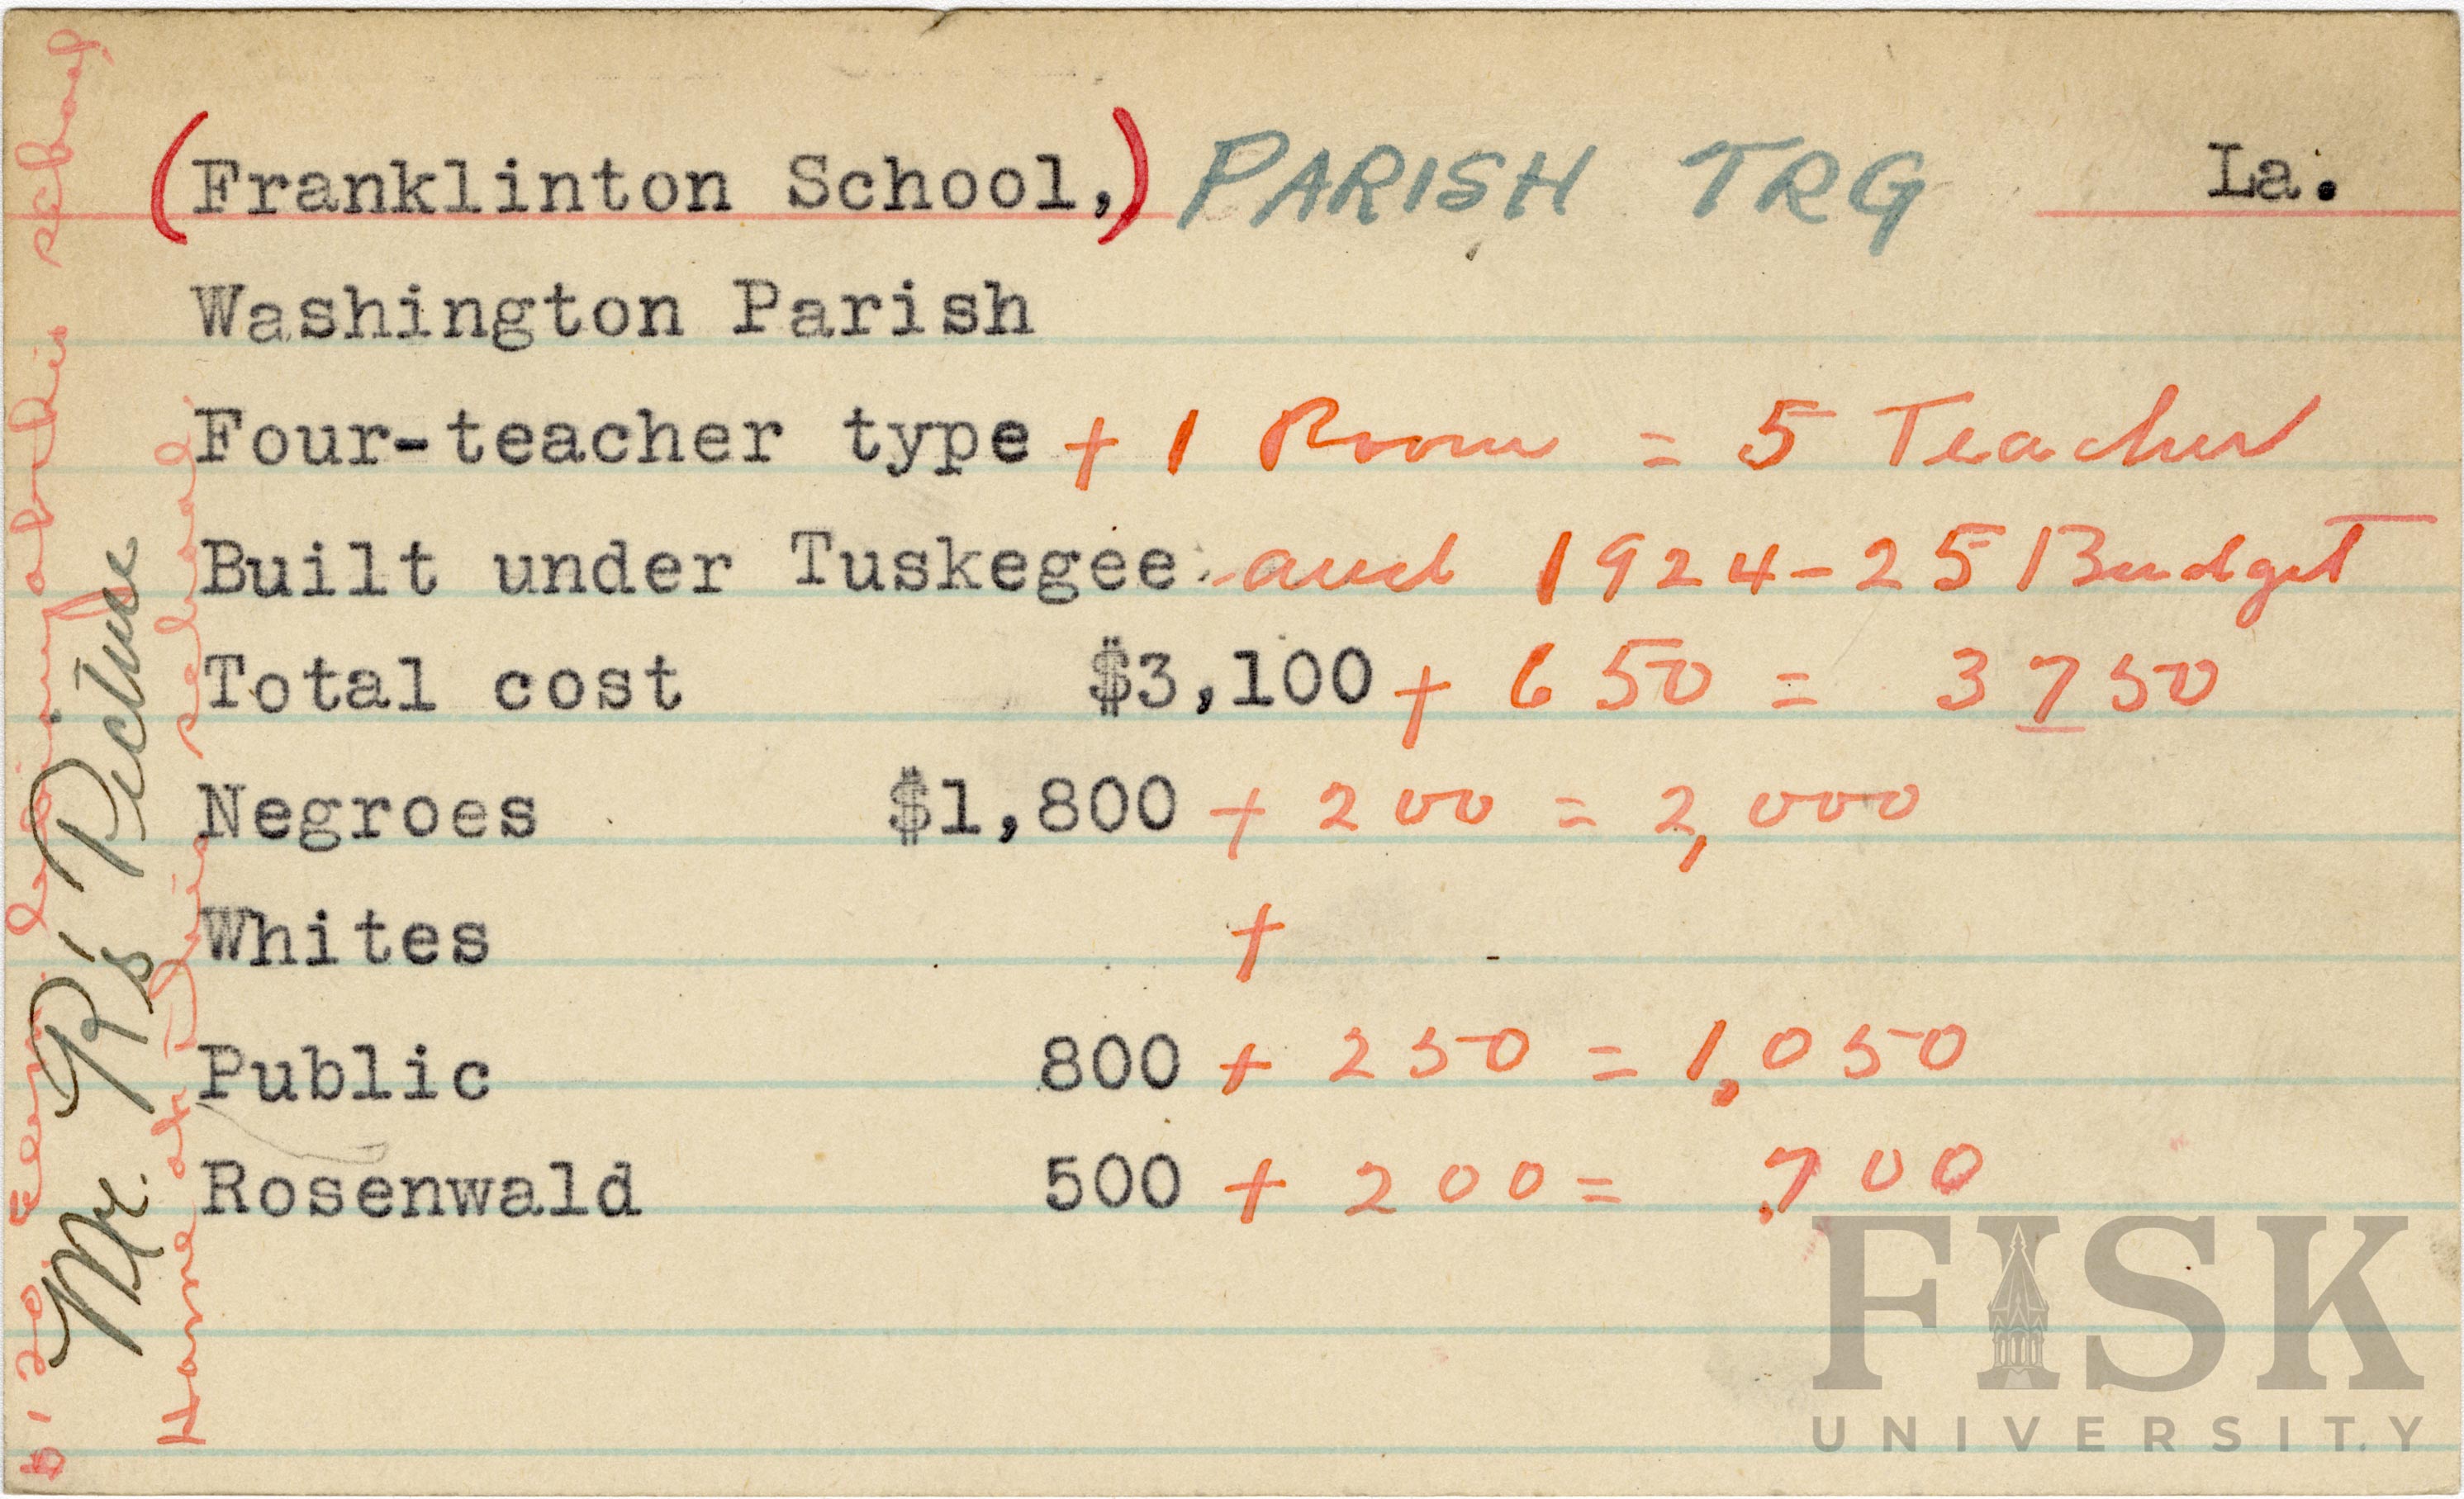 (Franklinton School,) PARISH TRG La.
Washington Parish
Four-teacher type + 1 Room = 5 Teacher
Built under Tuskegee and 1924-25 Budget
Total cost $3,100 + 650 = 3750
Negroes $1,800 + 200 = 2,000
Whites +
Public 800 + 250 = 1,050
Rosenwald 500 + 200 = 700
Mr. R's Picture
Home at this school
school
FISK
UNIVERSITY